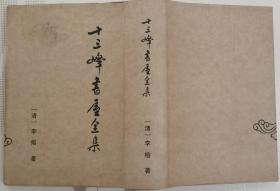 十三峰書屋全集
（清）李榕 著
十三峰書屋全集
（清）李榕 著